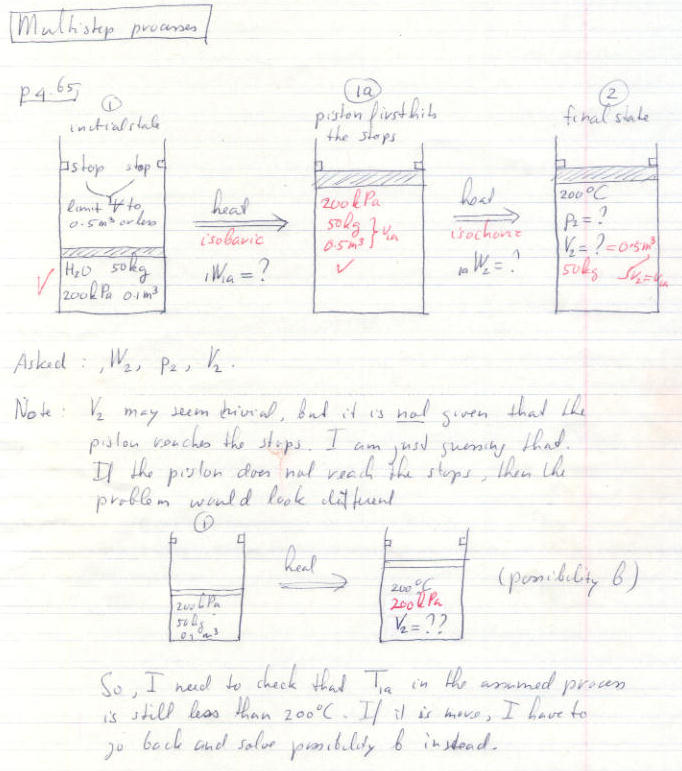 Multistep processes
p 4.65,
1
initial state
stop stop
limit V to
0.5m³ or less
H₂O 50kg
200kPa 0.1m³
✓
heat
isobaric
₁W₁ₐ = ?
1a
piston first hits
the stops
200kPa
50kg
0.5m³ } v₁ₐ
✓
heat
isochoric
₁ₐW₂ = ?
2
final state
200°C
p₂ = ?
V₂ = ? = 0.5m³
50kg v₂ = v₁ₐ
Asked : ₁W₂, p₂, V₂.
Note : V₂ may seem trivial, but it is not given that the
piston reaches the stops. I am just guessing that.
If the piston does not reach the stops, then the
problem would look different
1
200kPa
50kg
0.1m³
heat
200°C
200kPa
V₂ = ??
(possibility b)
So, I need to check that T₁ₐ in the assumed process
is still less than 200°C. If it is more, I have to
go back and solve possibility b instead.